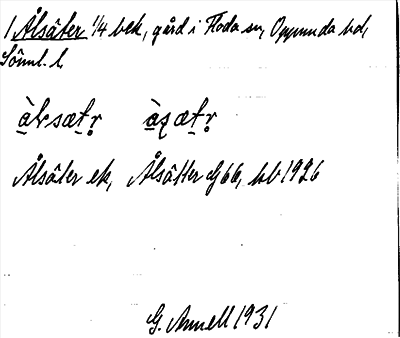 1 Ålsäter 1/4 bek, gård i Floda sn, Oppunda hd,
Söml. l.
àlsætr̥ àʂætr̥
Ålsäter ek, Ålsätter G 66, kb 1926
G. Annell 1931